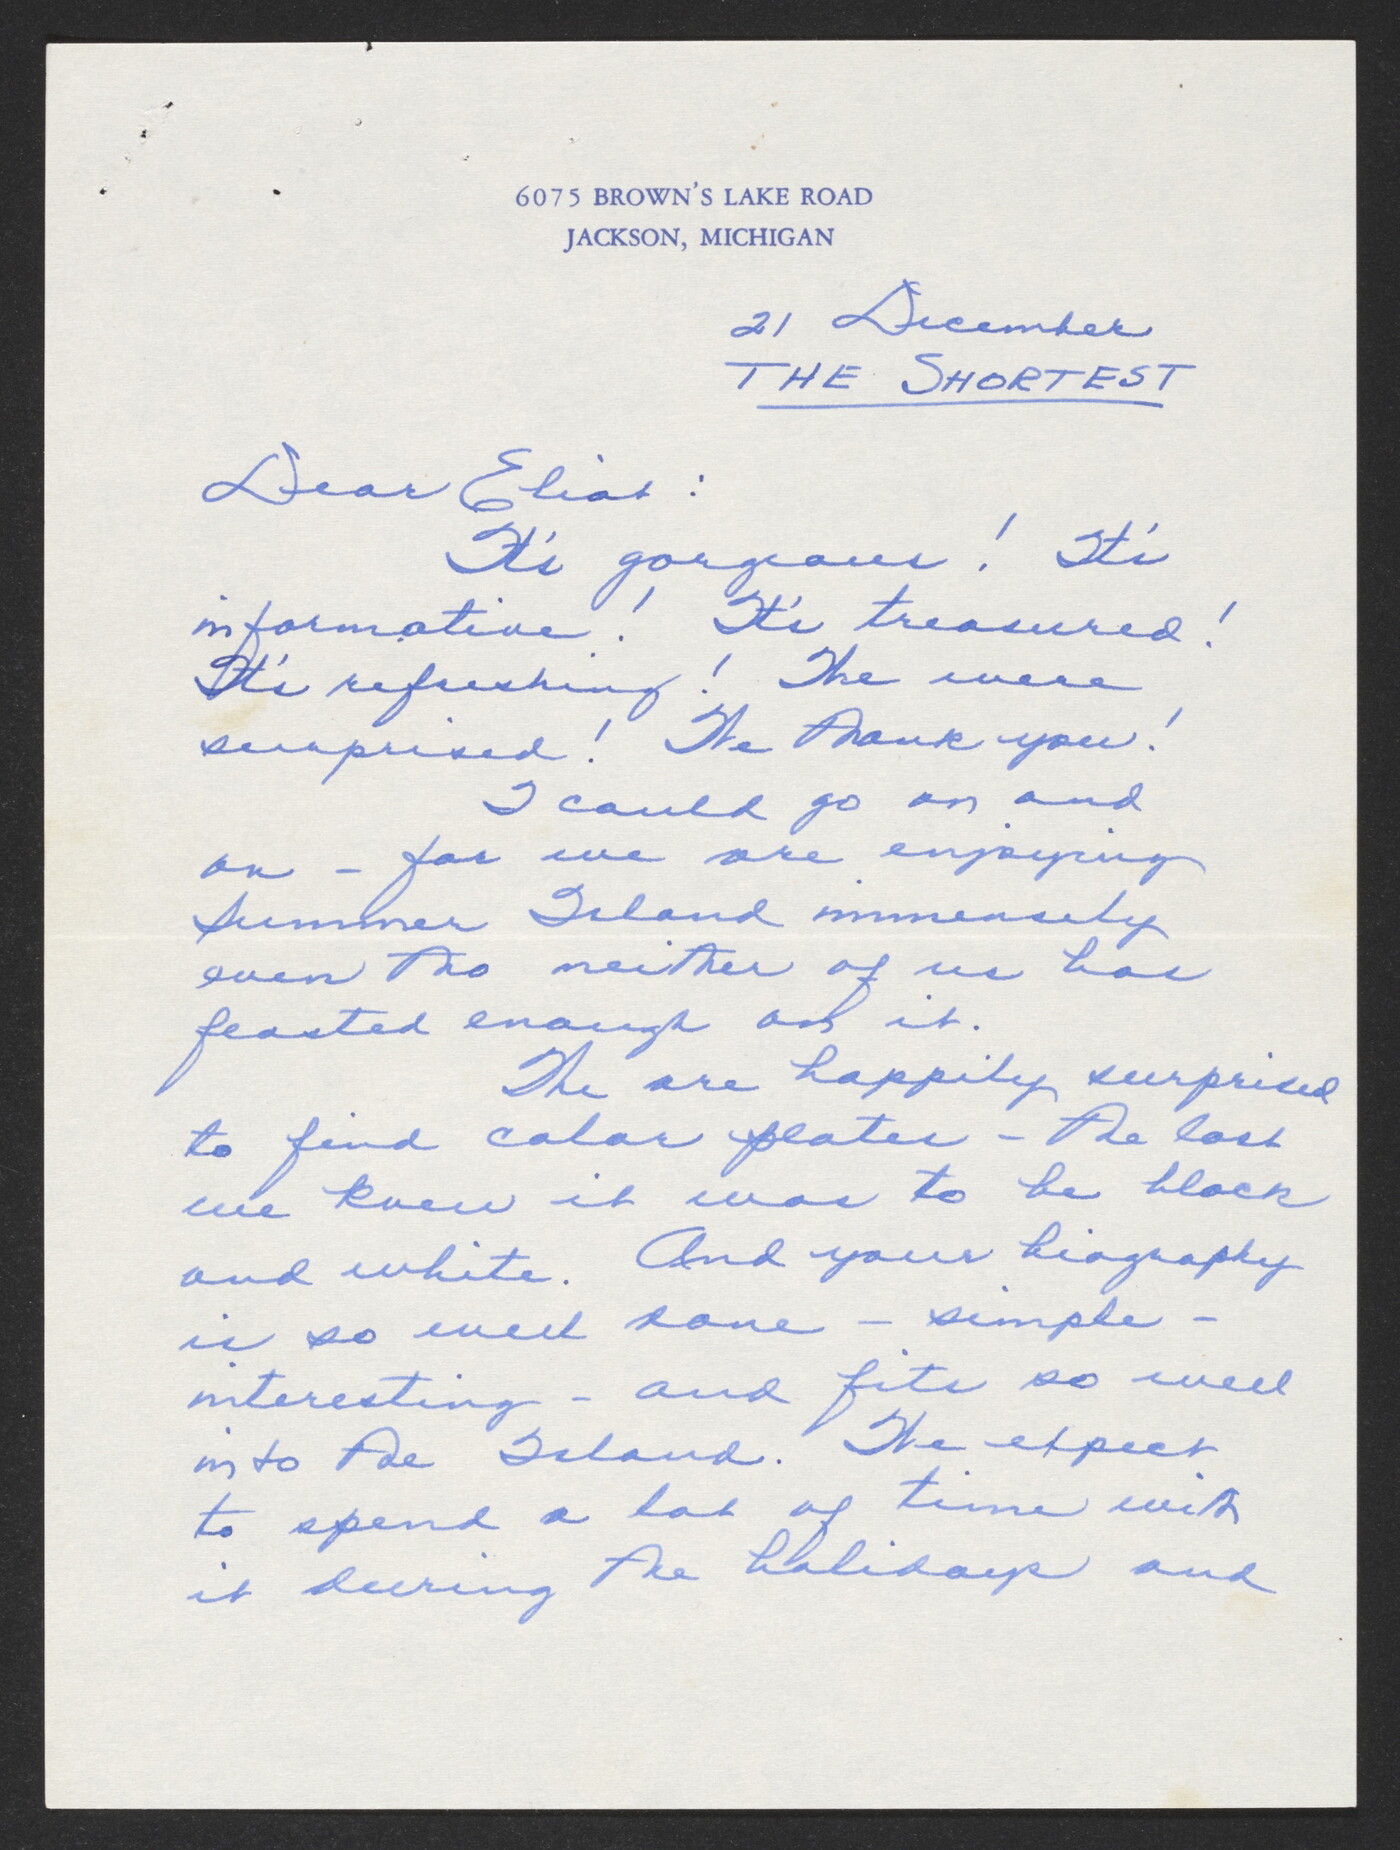 6075 BROWN'S LAKE ROAD
JACKSON, MICHIGAN
21 December
THE SHORTEST
Dear Eliot:
It's gorgeous! It's
informative! It's treasured!
It's refreshing! We were
surprised! We thank you!
I could go on and
on - for we are enjoying
Summer Island immensely
even tho neither of us has
feasted enough on it.
We are happily surprised
to find color plates - the last
we knew it was to be black
and white. And your biography
is so well done - simple -
interesting - and fits so well
into the Island. We expect
to spend a lot of time with
it during the holidays and